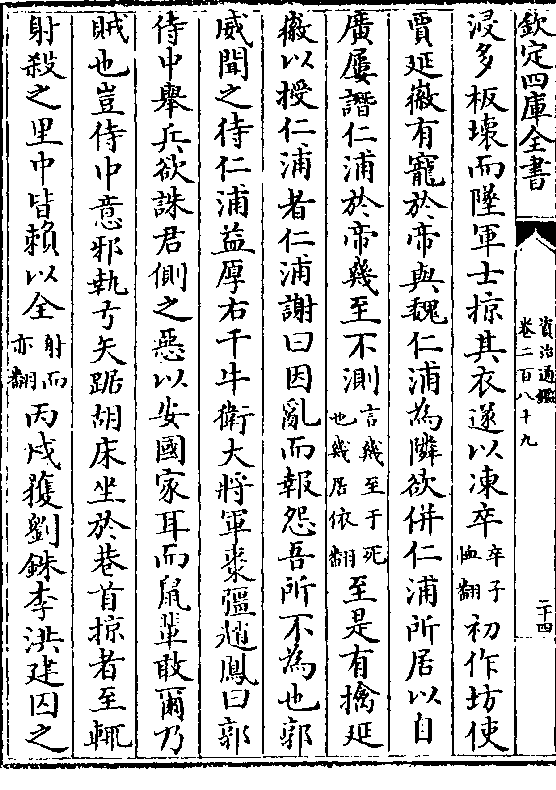 欽定四庫全書
資治通鑑
卷二百八十九
二十四
浸多板壊而墜軍士掠其衣遂以凍卒卒子恤翻初作坊使
賈延徽有寵於帝與魏仁浦為隣欲併仁浦所居以自
廣屢譖仁浦於帝幾至不測言幾至于死也幾居依翻至是有擒延
徽以授仁浦者仁浦謝曰因亂而報怨吾所不為也郭
威聞之待仁浦益厚右千牛衛大將軍棗彊趙鳳曰郭
侍中舉兵欲誅君側之惡以安國家耳而鼠輩敢爾乃
賊也豈侍中意邪執弓矢踞胡床坐於巷首掠者至輒
射殺之里中皆賴以全射而亦翻丙戌獲劉銖李洪建囚之